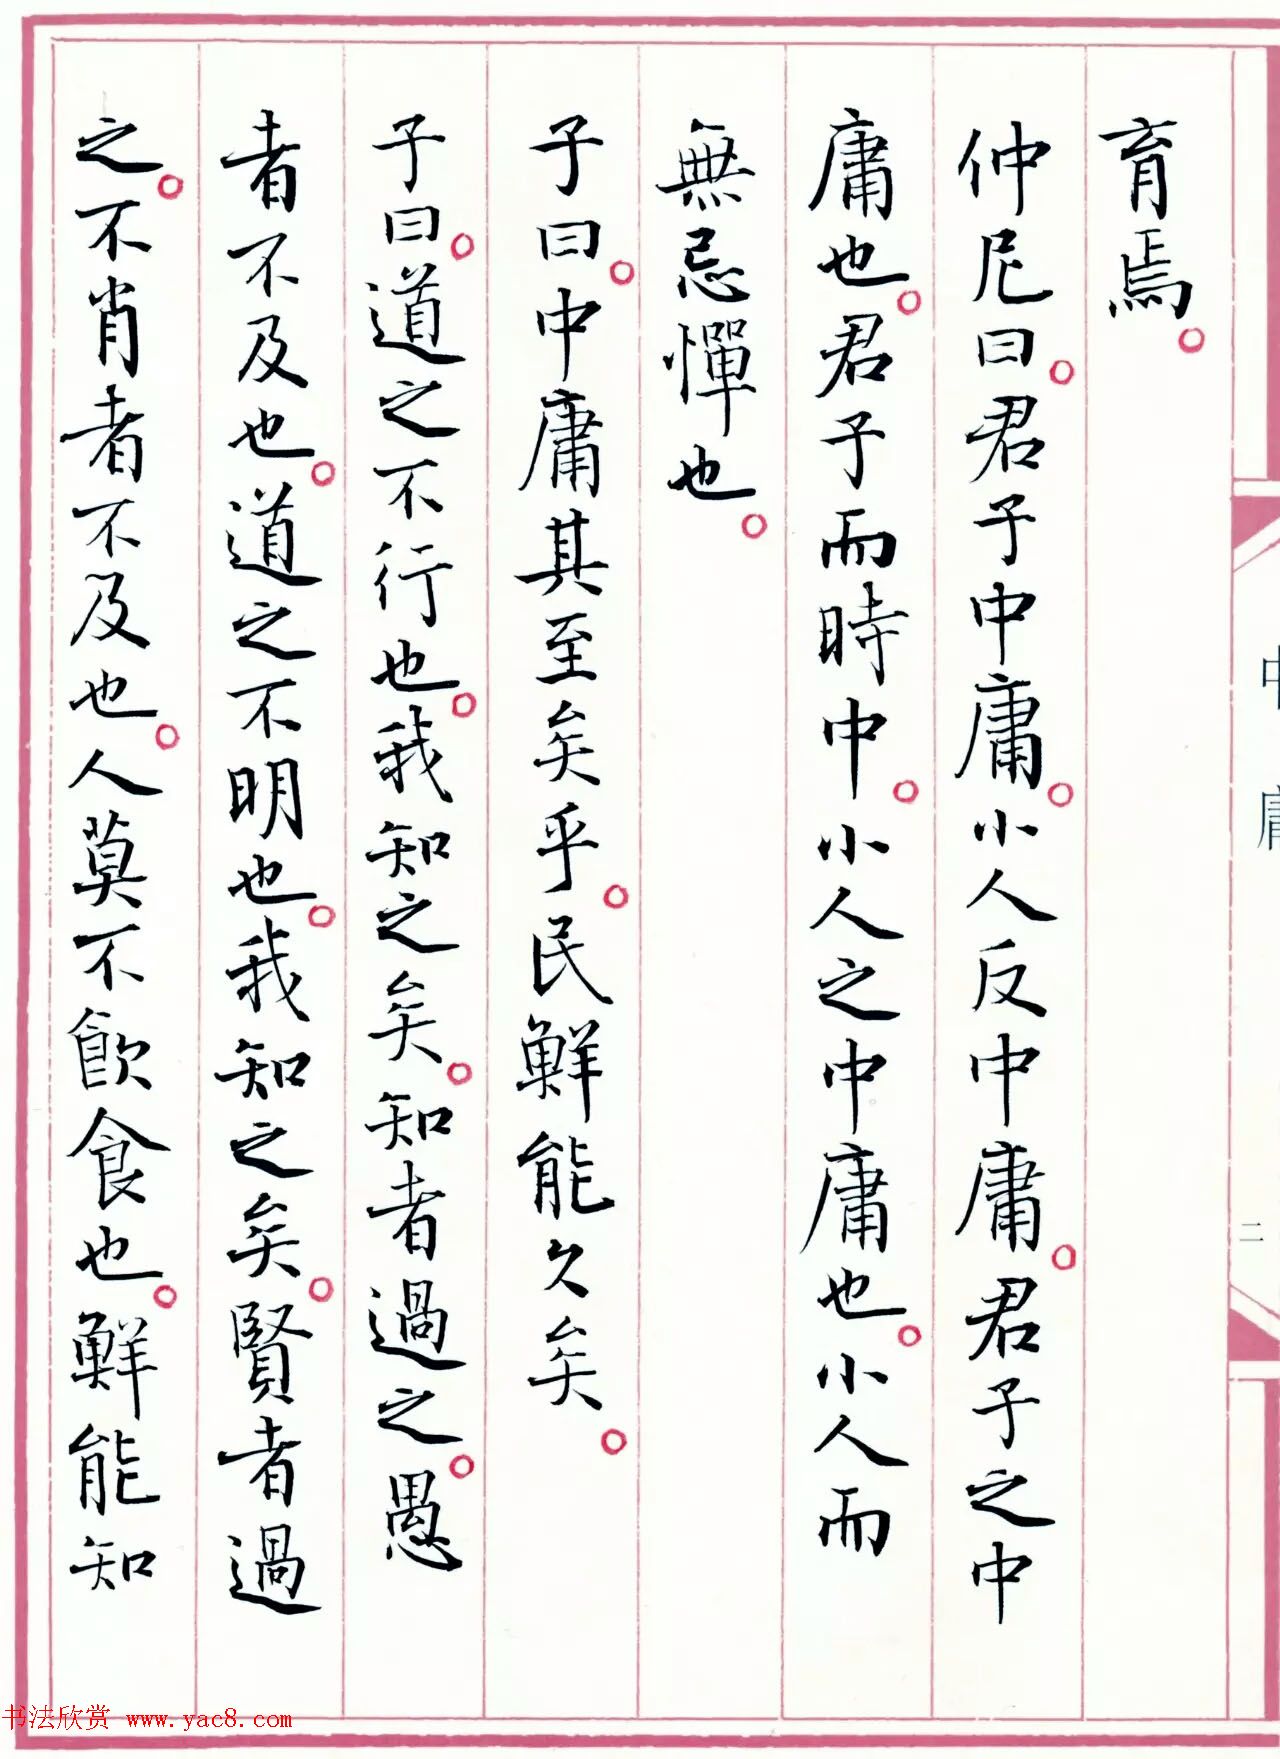 育焉。
仲尼曰。君子中庸。小人反中庸。君子之中
庸也。君子而時中。小人之中庸也。小人而
無忌憚也。
子曰。中庸其至矣乎。民鮮能久矣。
子曰。道之不行也。我知之矣。知者過之。愚
者不及也。道之不明也。我知之矣。賢者過
之。不肖者不及也。人莫不飲食也。鮮能知
中庸
二
书法欣赏 www.yac8.com